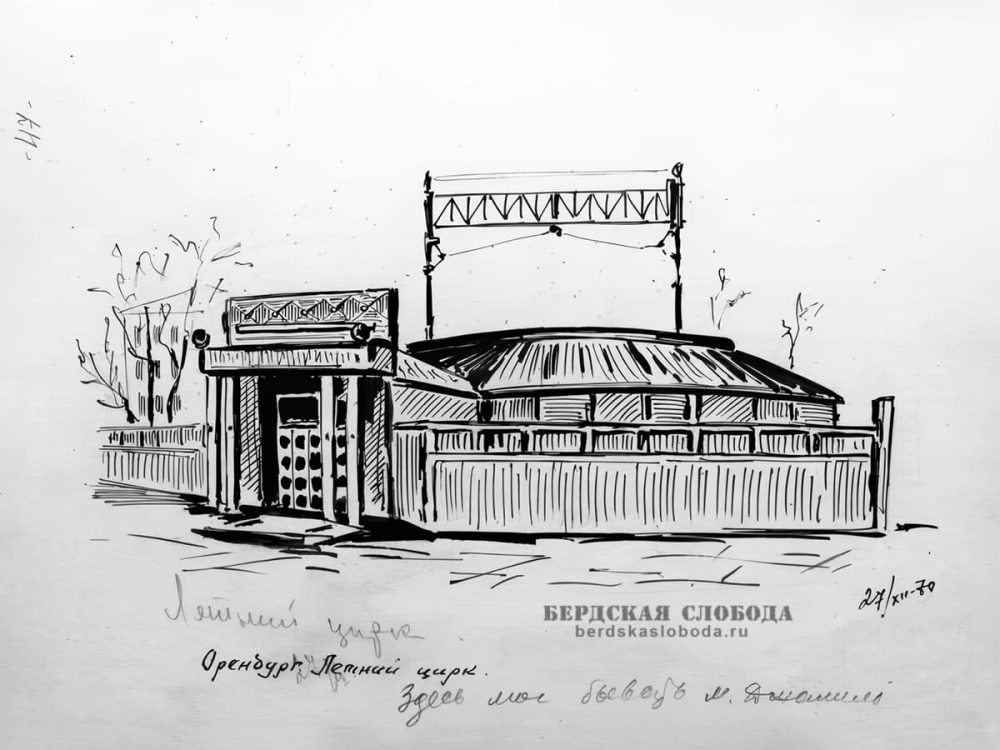 -КИ-
27/XII-70
Летний цирк.
БЕРДСКАЯ СЛОБОДА
berdskasloboda.ru
Оренбург. Летний цирк.
Здесь мог бывать М. Джалиль